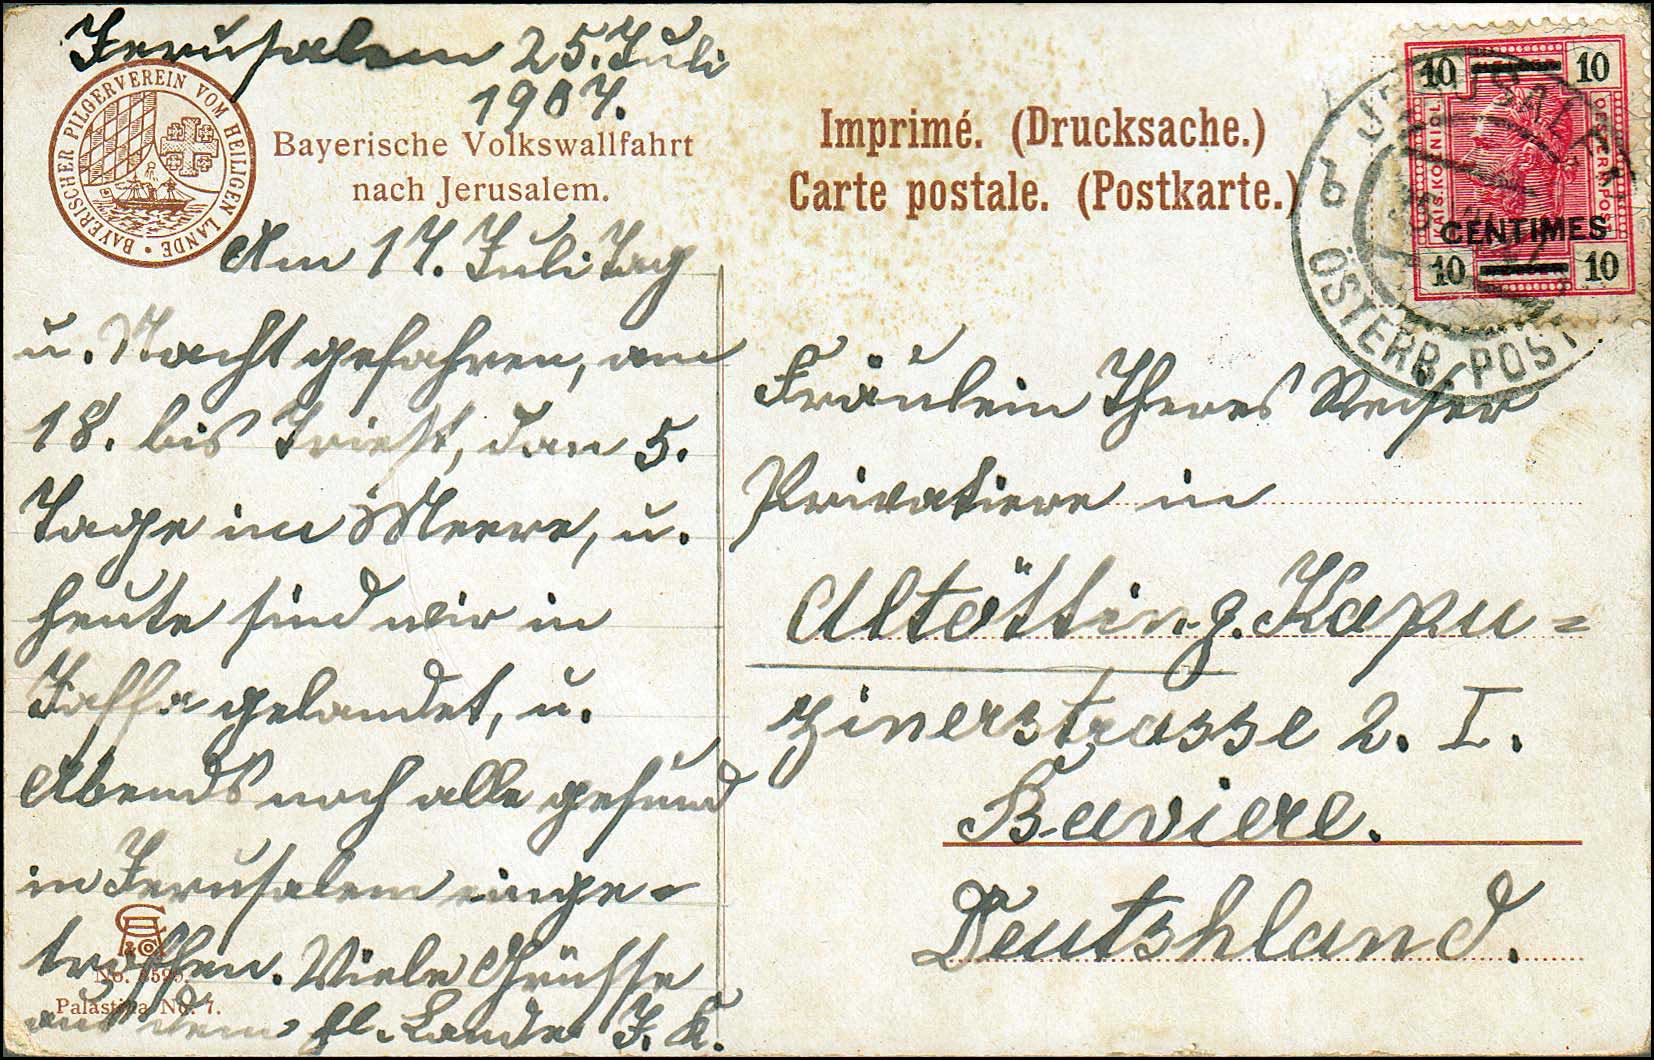 Jerusalem 25. Juli
1907.
BAYERISCHER PILGERVEREIN VOM HEILIGEN LANDE
Bayerische Volkswallfahrt
nach Jerusalem.
Am 17. Juli Tag
u. Nacht gefahren, am
18. bis Triest, dan 5.
Tage im Meere, u.
heute sind wir in
Jaffa gelandet, u.
Abends noch alle gesund
in Jerusalem einge-
troffen. Viele Grüsse
aus dem hl. Lande J. K.
&Co
No.
Palästina No. 7.
Imprimé. (Drucksache.)
Carte postale. (Postkarte.)
10 10
KAIS. KÖNIGL. OESTERR. POST
CENTIMES
10 10
JERUSALEM
ÖSTERR. POST
Fräulein Theres
Privatiere in
Altötting. Kapu=
zinerstrasse 2. I.
Baviere.
Deutshland.